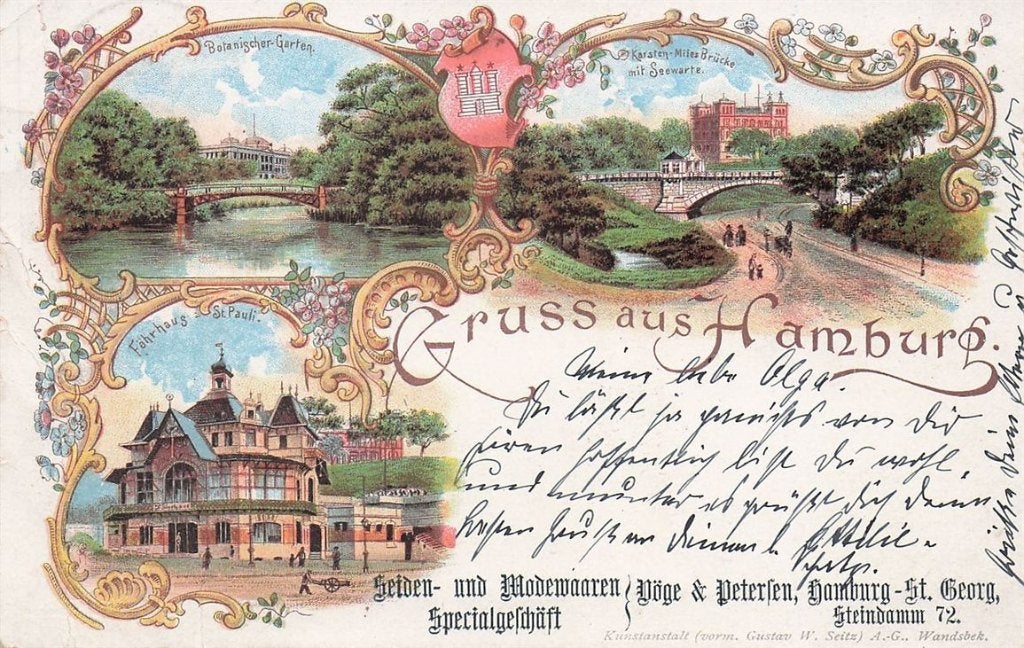 Botanischer-Garten.
Karsten-Miles Brücke
mit Seewarte.
Fährhaus St. Pauli.
Gruss aus Hamburg.
Meine liebe Olga.
Du läßt ja garnichts von Dir
hören hoffentlich bist Du wohl
und munter es grüßt Dich Deine
Ottilie
Seiden- und Modewaaren
Specialgeschäft
Vöge & Petersen, Hamburg-St. Georg,
Steindamm 72.
Kunstanstalt (vorm. Gustav W. Seitz) A.-G., Wandsbek.